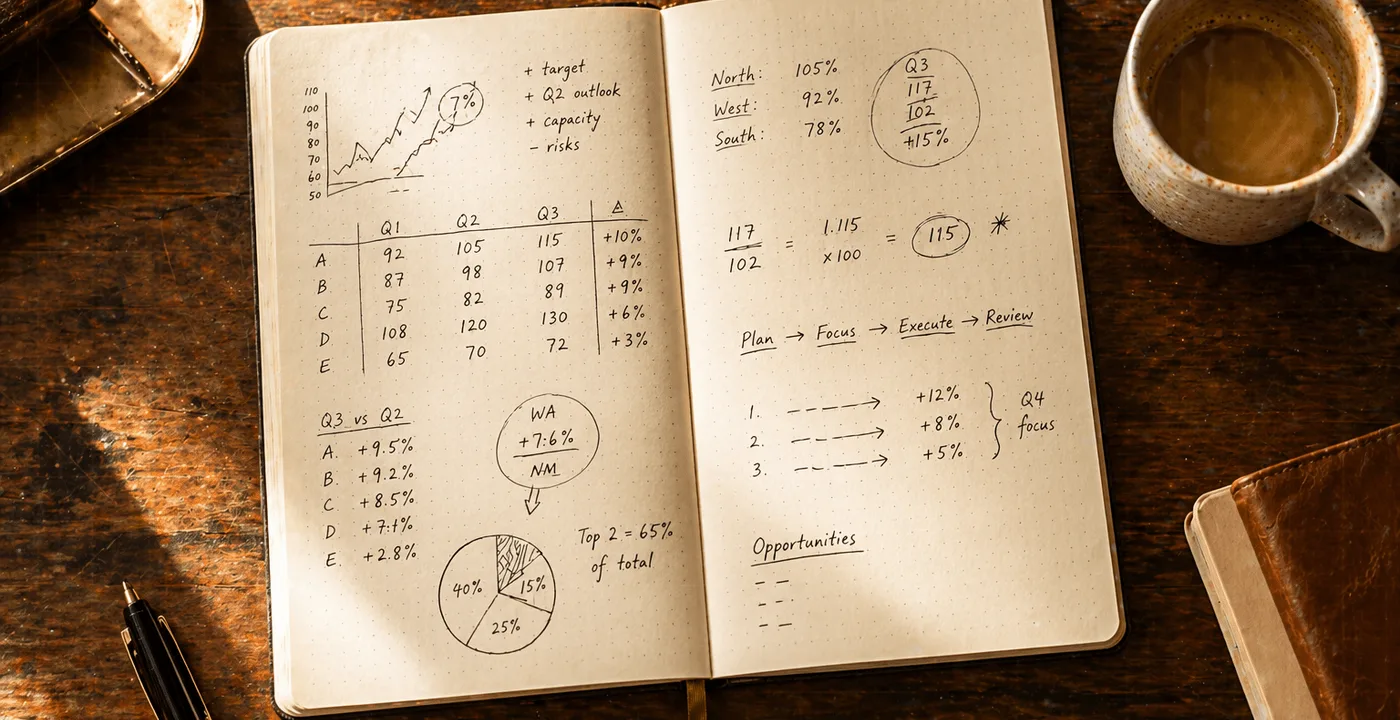 110
100
90
80
70
60
50
7%
+ target
+ Q2 outlook
+ capacity
− risks
Q1 Q2 Q3 Δ
A 92 105 115 +10%
B 87 98 107 +9%
C 75 82 89 +9%
D 108 120 130 +6%
E 65 70 72 +3%
Q3 vs Q2
A. +9.5%
B. +9.2%
C +8.5%
D
E. +2.8%
WA
+7:6%
NM
40%
15%
25%
Top 2 = 65%
of total
North: 105%
West: 92%
South: 78%
Q3
117
102
+15%
117
102
= 1.115
x100
= 115 *
Plan → Focus → Execute → Review
1. +12%
2. +8%
3. +5%
Q4
focus
Opportunities